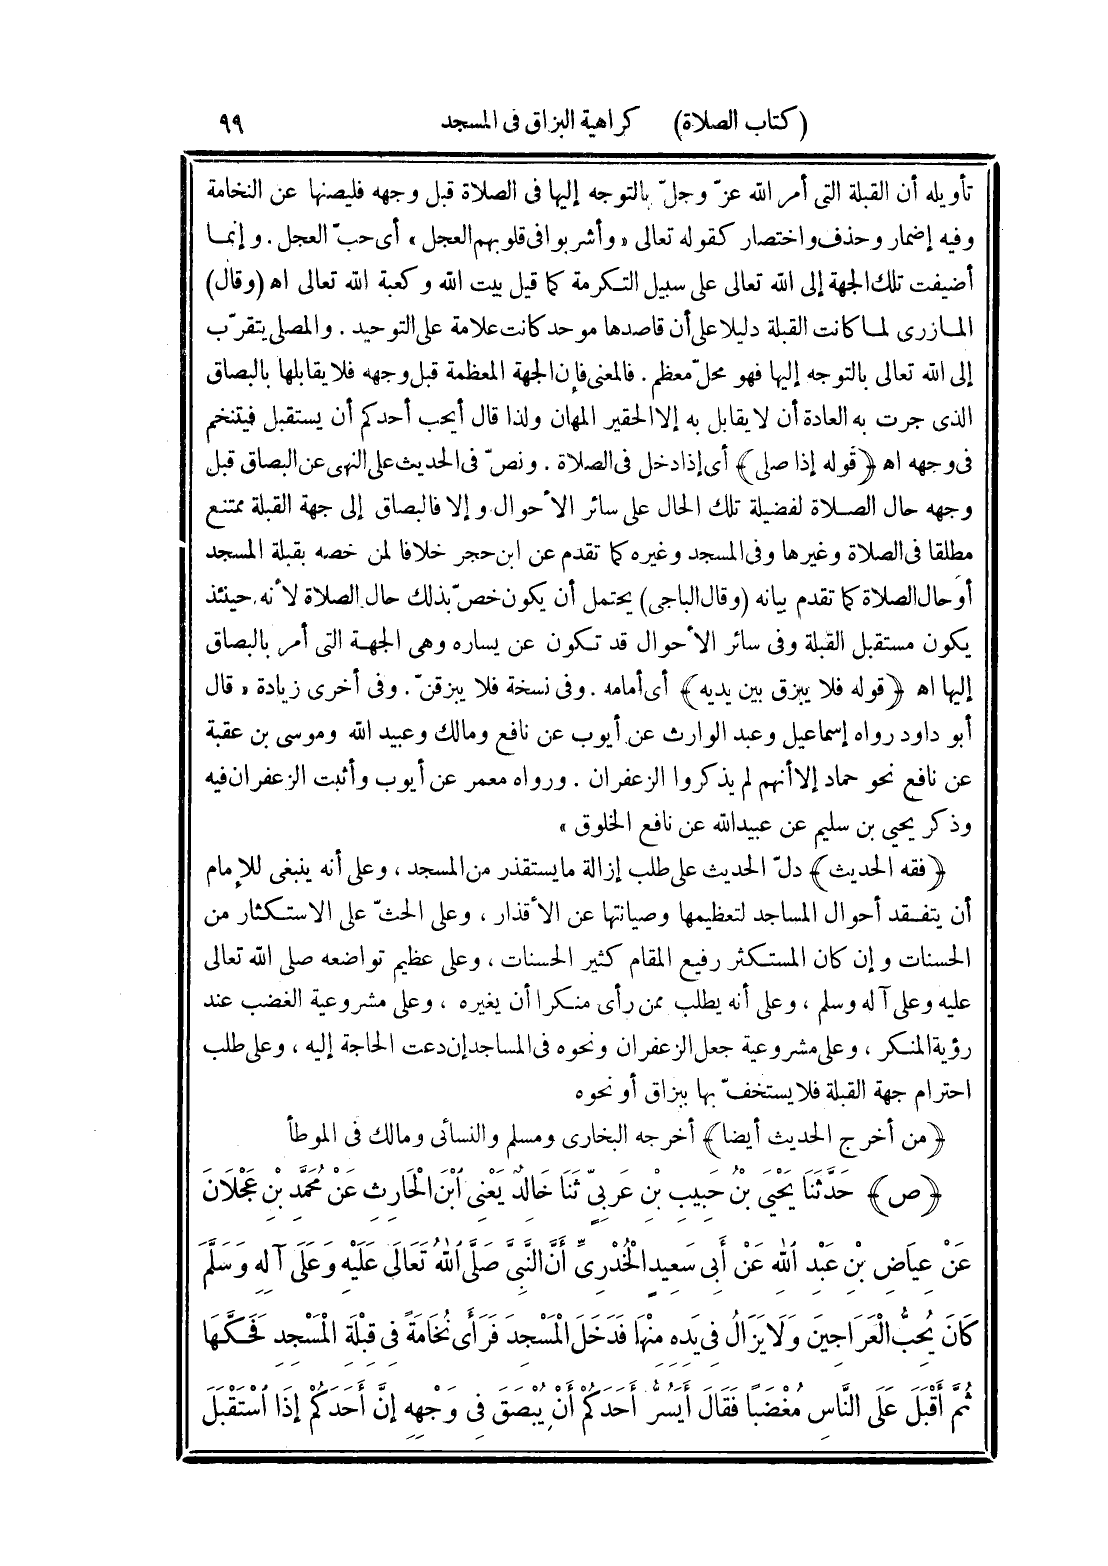 (كتاب الصلاة) كراهية البزاق فى المسجد ٩٩
تأويله أن القبلة التى أمر الله عزّ وجلّ بالتوجه إليها فى الصلاة قبل وجهه فليصنها عن النخامة
وفيه إضمار وحذف واختصار كقوله تعالى « وأشربوا فى قلوبهم العجل » أى حبّ العجل . وإنما
أضيفت تلك الجهة إلى الله تعالى على سبيل التكرمة كما قيل بيت الله وكعبة الله تعالى اه (وقال)
المازرى لما كانت القبلة دليلا على أن قاصدها موحد كانت علامة على التوحيد . والمصلى يتقرّب
إلى الله تعالى بالتوجه إليها فهو محلّ معظم . فالمعنى فإن الجهة المعظمة قبل وجهه فلا يقابلها بالبصاق
الذى جرت به العادة أن لا يقابل به إلا الحقير المهان ولذا قال أيحب أحدكم أن يستقبل فيتنخم
فى وجهه اه ﴿قوله إذا صلى﴾ أى إذا دخل فى الصلاة . ونصّ فى الحديث على النهى عن البصاق قبل
وجهه حال الصلاة لفضيلة تلك الحال على سائر الأحوال وإلا فالبصاق إلى جهة القبلة ممتنع
مطلقا فى الصلاة وغيرها وفى المسجد وغيره كما تقدم عن ابن حجر خلافا لمن خصه بقبلة المسجد
أو حال الصلاة كما تقدم بيانه (وقال الباجى) يحتمل أن يكون خصّ بذلك حال الصلاة لأنه حينئذ
يكون مستقبل القبلة وفى سائر الأحوال قد تكون عن يساره وهى الجهة التى أمر بالبصاق
إليها اه ﴿قوله فلا يبزق بين يديه﴾ أى أمامه . وفى نسخة فلا يبزقنّ . وفى أخرى زيادة « قال
أبو داود رواه إسماعيل وعبد الوارث عن أيوب عن نافع ومالك وعبيد الله وموسى بن عقبة
عن نافع نحو حماد إلا أنهم لم يذكروا الزعفران . ورواه معمر عن أيوب وأثبت الزعفران فيه
وذكر يحيى بن سليم عن عبيد الله عن نافع الخلوق »
﴿فقه الحديث﴾ دلّ الحديث على طلب إزالة ما يستقذر من المسجد ، وعلى أنه ينبغى للإمام
أن يتفقد أحوال المساجد لتعظيمها وصيانتها عن الأقذار ، وعلى الحثّ على الاستكثار من
الحسنات وإن كان المستكثر رفيع المقام كثير الحسنات ، وعلى عظيم تواضعه صلى الله تعالى
عليه وعلى آله وسلم ، وعلى أنه يطلب ممن رأى منكرا أن يغيره ، وعلى مشروعية الغضب عند
رؤية المنكر ، وعلى مشروعية جعل الزعفران ونحوه فى المساجد إن دعت الحاجة إليه ، وعلى طلب
احترام جهة القبلة فلا يستخفّ بها ببزاق أو نحوه
﴿من أخرج الحديث أيضا﴾ أخرجه البخارى ومسلم والنسائى ومالك فى الموطأ
﴿ص﴾ حَدَّثَنَا يَحْيَى بْنُ حَبِيبِ بْنِ عَرَبِىٍّ ثَنَا خَالِدٌ يَعْنِى ٱبْنَ الْحَارِثِ عَنْ مُحَمَّدِ بْنِ عَجْلَانَ
عَنْ عِيَاضِ بْنِ عَبْدِ ٱللهِ عَنْ أَبِى سَعِيدٍ الْخُدْرِىِّ أَنَّ النَّبِىَّ صَلَّى ٱللهُ تَعَالَى عَلَيْهِ وَعَلَى آلِهِ وَسَلَّمَ
كَانَ يُحِبُّ الْعَرَاجِينَ وَلَا يَزَالُ فِى يَدِهِ مِنْهَا فَدَخَلَ الْمَسْجِدَ فَرَأَى نُخَامَةً فِى قِبْلَةِ الْمَسْجِدِ فَحَكَّهَا
ثُمَّ أَقْبَلَ عَلَى النَّاسِ مُغْضَبًا فَقَالَ أَيَسُرُّ أَحَدَكُمْ أَنْ يُبْصَقَ فِى وَجْهِهِ إِنَّ أَحَدَكُمْ إِذَا ٱسْتَقْبَلَ